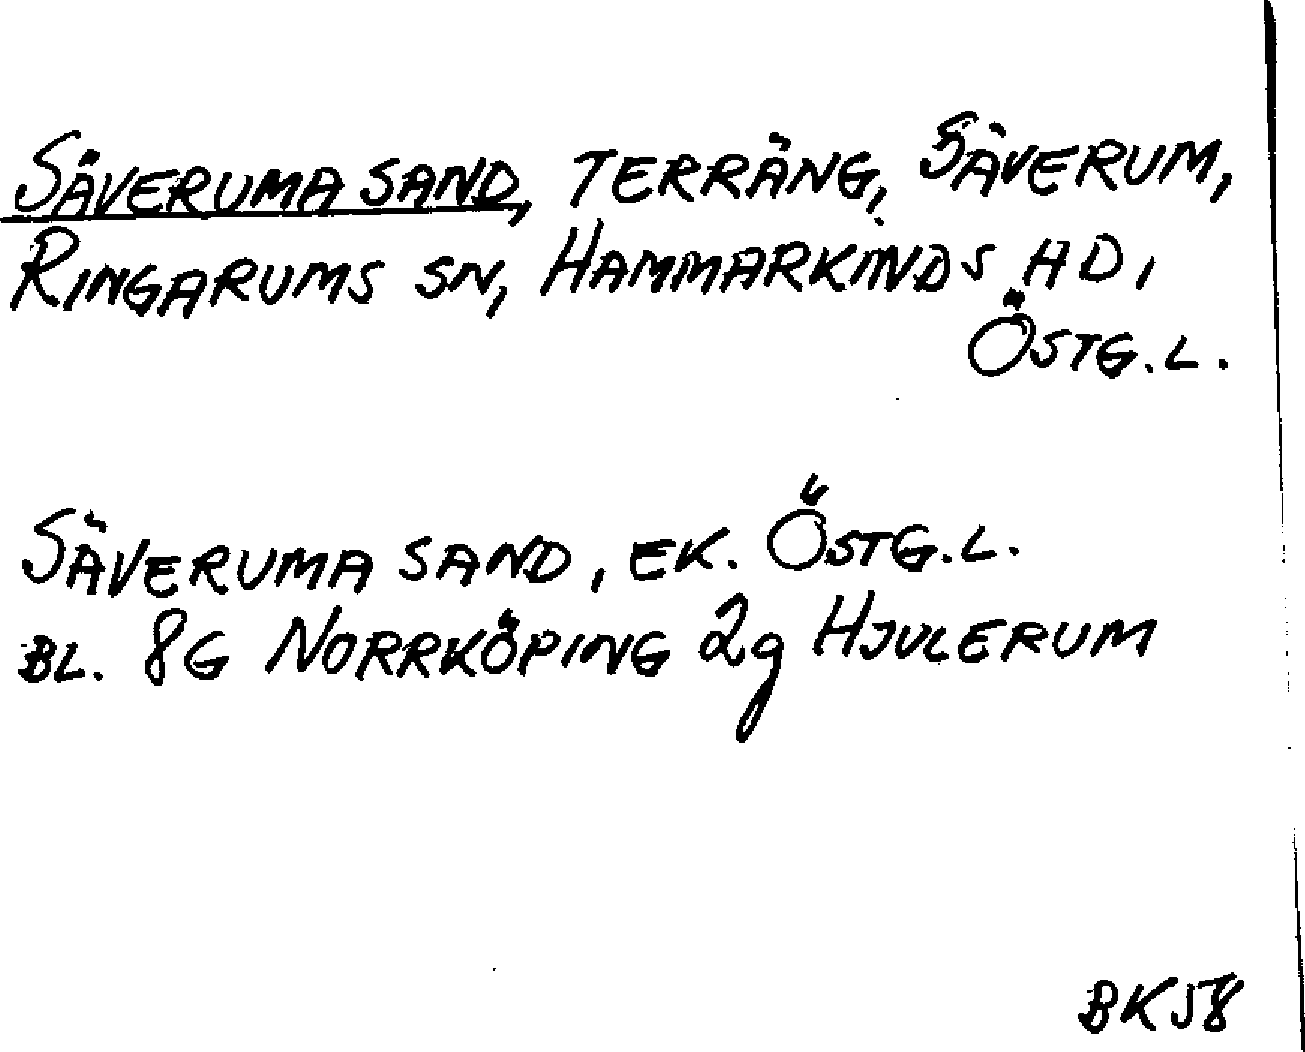 SÄVERUMA SAND, TERRÄNG, SÄVERUM,
RINGARUMS SN, HAMMARKINDS HD,
ÖSTG.L.
SÄVERUMA SAND, EK. ÖSTG.L.
BL. 8G NORRKÖPING 2g HJULERUM
BK58